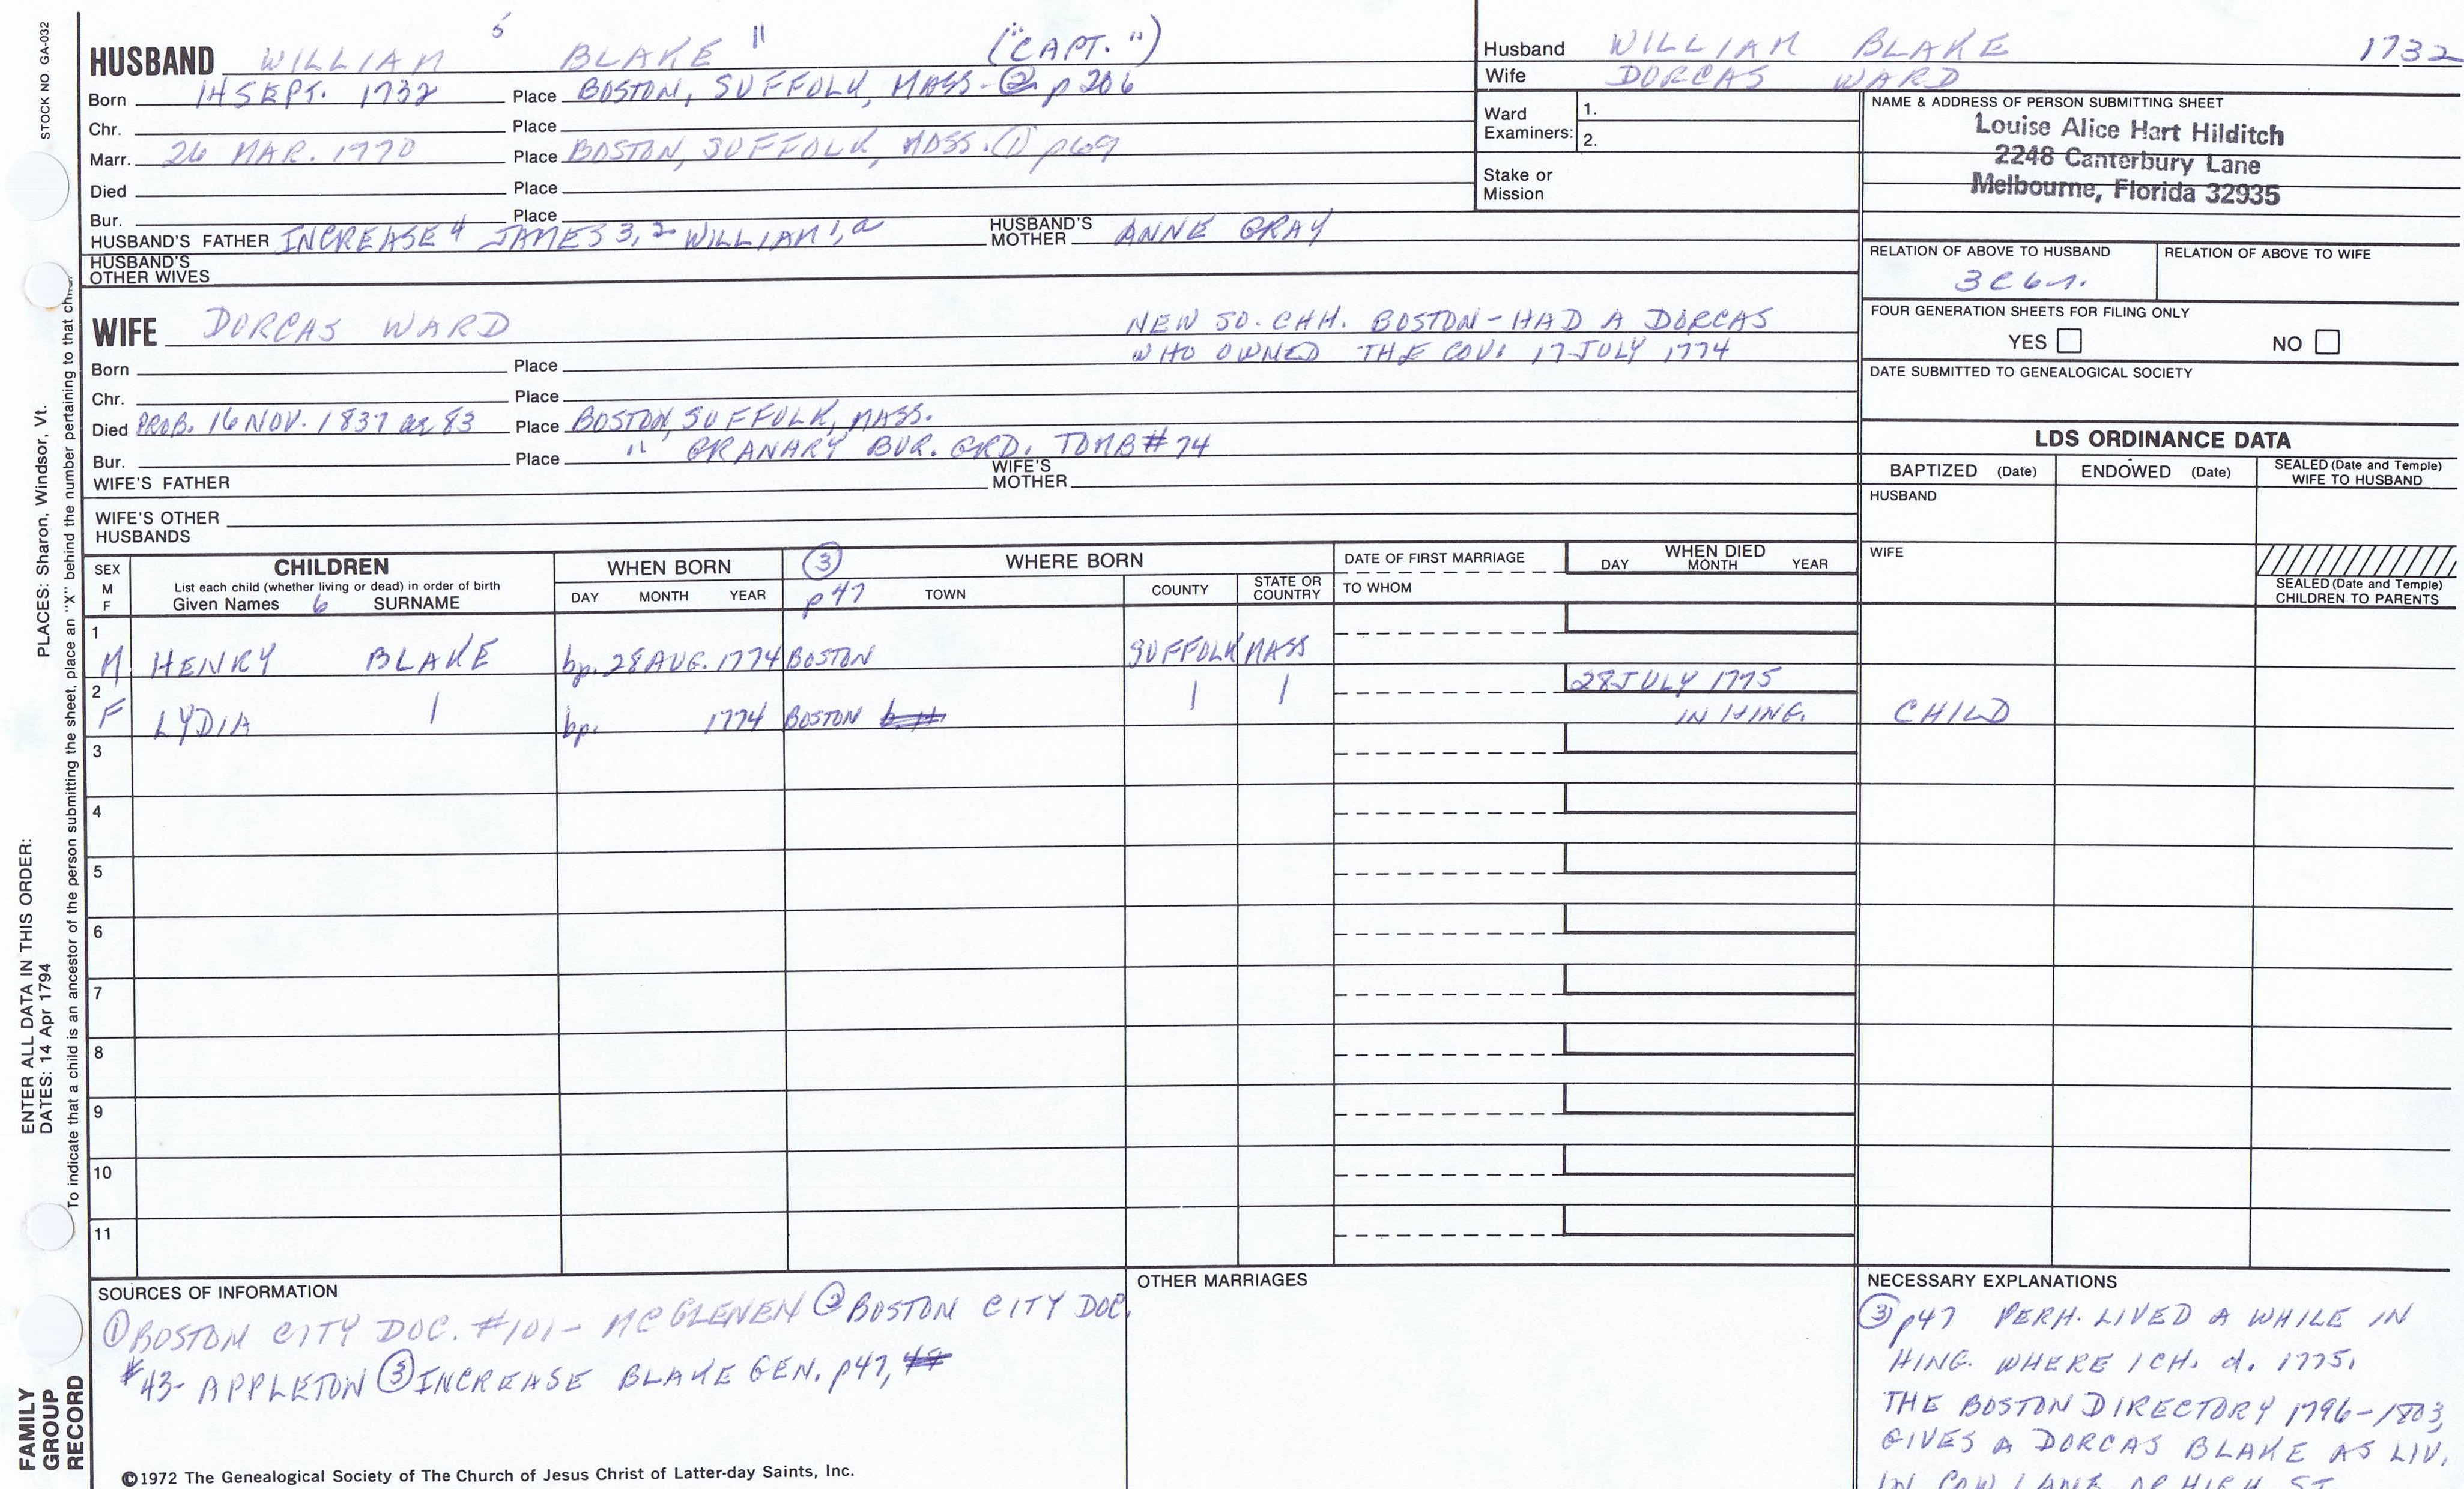 STOCK NO. GA-032
PLACES: Sharon, Windsor, Vt.
ENTER ALL DATA IN THIS ORDER:
DATES: 14 Apr 1794
To indicate that a child is an ancestor of the person submitting the sheet, place an "X" behind the number pertaining to that child.
FAMILY
GROUP
RECORD
HUSBAND WILLIAM 5 BLAKE " ("CAPT.")
Born 14 SEPT. 1732 Place BOSTON, SUFFOLK, MASS. - ② p 206
Chr. Place
Marr. 26 MAR. 1770 Place BOSTON, SUFFOLK, MASS. ① p69
Died Place
Bur. Place
HUSBAND'S FATHER INCREASE 4 JAMES 3, 2 WILLIAM 1, a HUSBAND'S MOTHER ANNE GRAY
HUSBAND'S
OTHER WIVES
WIFE DORCAS WARD NEW SO. CHH. BOSTON - HAD A DORCAS
WHO OWNED THE COV. 17 JULY 1774
Born Place
Chr. Place
Died PROB. 16 NOV. 1837 ae 83 Place BOSTON, SUFFOLK, MASS.
Bur. Place " GRANARY BUR. GRD. TOMB #74
WIFE'S FATHER WIFE'S MOTHER
WIFE'S OTHER
HUSBANDS
Husband WILLIAM BLAKE 1732
Wife DORCAS WARD
Ward
Examiners: 1.
2.
Stake or
Mission
NAME & ADDRESS OF PERSON SUBMITTING SHEET
Louise Alice Hart Hilditch
2248 Canterbury Lane
Melbourne, Florida 32935
RELATION OF ABOVE TO HUSBAND RELATION OF ABOVE TO WIFE
3C6r.
FOUR GENERATION SHEETS FOR FILING ONLY
YES NO
DATE SUBMITTED TO GENEALOGICAL SOCIETY
LDS ORDINANCE DATA
BAPTIZED (Date) ENDOWED (Date) SEALED (Date and Temple)
WIFE TO HUSBAND
HUSBAND
WIFE
SEALED (Date and Temple)
CHILDREN TO PARENTS
SEX
M
F
CHILDREN
List each child (whether living or dead) in order of birth
Given Names 6 SURNAME
WHEN BORN
DAY MONTH YEAR
③ WHERE BORN
p 47 TOWN COUNTY STATE OR COUNTRY
DATE OF FIRST MARRIAGE
TO WHOM
WHEN DIED
DAY MONTH YEAR
1
M HENRY BLAKE bp. 28 AUG. 1774 BOSTON SUFFOLK MASS
2 28 JULY 1775
F LYDIA | bp. 1774 BOSTON | | IN HING. CHILD
3
4
5
6
7
8
9
10
11
SOURCES OF INFORMATION
① BOSTON CITY DOC. #101 - MCGLENEN ② BOSTON CITY DOC.
#43 - APPLETON ③ INCREASE BLAKE GEN. p47,
©1972 The Genealogical Society of The Church of Jesus Christ of Latter-day Saints, Inc.
OTHER MARRIAGES
NECESSARY EXPLANATIONS
③ p47 PERH. LIVED A WHILE IN
HING. WHERE 1 CH. d. 1775.
THE BOSTON DIRECTORY 1796-1803,
GIVES A DORCAS BLAKE AS LIV.
IN COW LANE OR HIGH ST